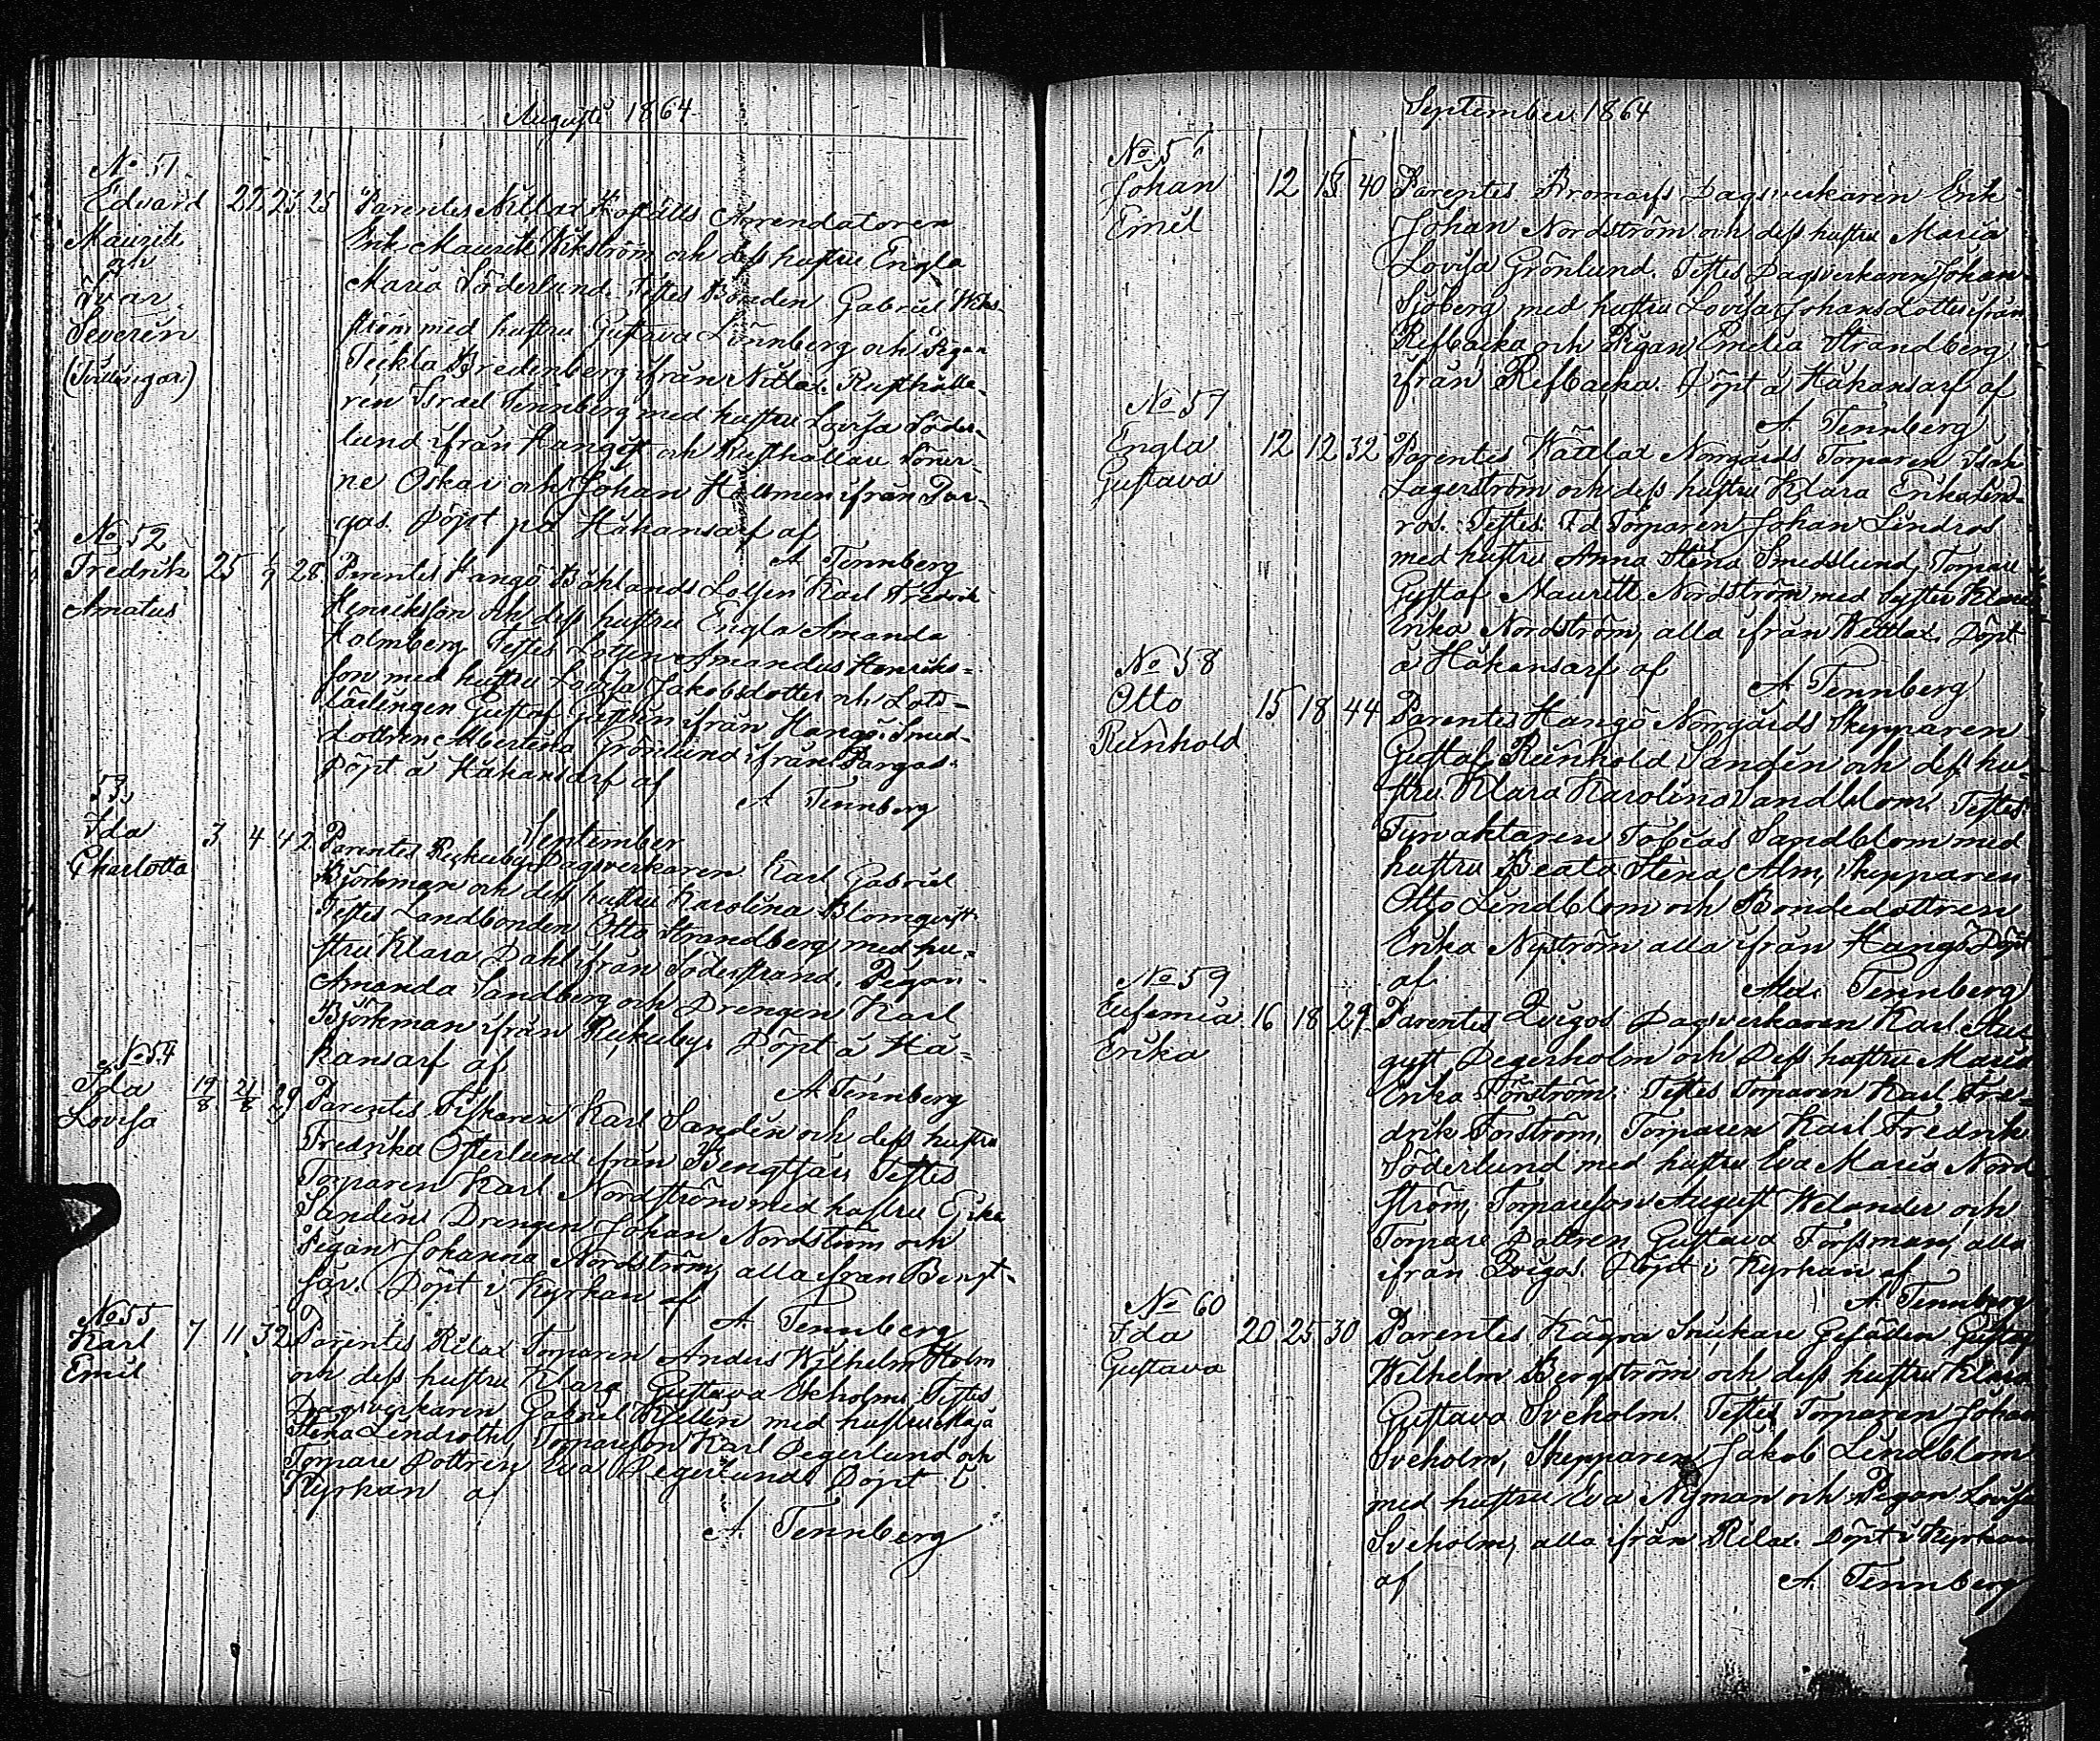 Augusti 1864
No 51.
Edvard 22 23 25 Parentes Nitlax Arrendatoren
Mauritz Erik Mauritz Wikström och deſs huſtru Engla
och Maria Söderlund. Teſtes Bonden Gabriel Wik-
Ivar ſtröm med huſtru Guſtava Lönnberg och Pigan
Severin Teckla Bredenberg ifrån Nitlax. Ruſthålla-
(Tvillingar) ren Israel Tennberg med huſtru Lovisa Söder-
lund ifrån Hangö och Ruſthållare Söner-
ne Oskar och Johan Hollmen ifrån Par-
gas. Döpt på Håkansarf af
A Tennberg
No 52
Fredrik 25 1/9 28 Parentes Hangö Lotsen Karl Fredrik
Amatus Henriksſon och deſs huſtru Engla Amanda
Holmberg. Teſtes Lotsen Amandus Henriks-
ſon med huſtru Lovisa Jakobsdotter och Lots-
lärlingen Guſtaf ifrån Hangö. Smed-
dottren Albertina Grönlund ifrån Pargas.
Döpt å Håkansarf af
A Tennberg
53,
September
Ida 3 4 42 Parentes Dagsverkaren Karl Gabriel
Charlotta Björkman och deſs huſtru Karolina Blomqviſt.
Teſtes Landbonden Otto Strandberg med hu-
ſtru Klara Dahl ifrån Söderſtrand. Pigan
Amanda Sandberg och Drengen Karl
Björkman ifrån Döpt å Hå-
kansarf af
A Tennberg
No 54
Ida 19/8 21/8 29 Parentes Fiſkaren Karl Sandin och deſs huſtru
Lovisa Fredrika Öſterlund ifrån Bengtſår. Teſtes
Torparen Karl Nordſtröm med huſtru
Sandin Drengen Johan Nordström och
Pigan Johanna Nordström, alla ifrån Bengt-
ſår. Döpt i Kyrkan af
A. Tennberg
No 55
Karl 7 11 32 Parentes Rilax Torparen Anders Wilhelm Holm
Emil och deſs huſtru Klara Guſtava Ekholm. Teſtes
Dagsverkaren Gabriel Kjellin med huſtru Maja
Stina Lindroth, Torpareſon Karl Degerlund och
Torpare Dottren Eva Degerlund. Döpt i
Kyrkan af
A. Tennberg
September 1864
No 56
Johan 12 18 40 Parentes Bromarfs Dagsverkaren Erik
Emil Johan Nordström och deſs huſtru Maria
Lovisa Grönlund. Teſtes Dagsverkaren Johan
Sjöberg med huſtru Lovisa Johansdotter ifrån
Refbacka och Pigan Emelia Strandberg
ifrån Refbacka. Döpt å Håkansarf af
A Tennberg
No 57
Engla 12 12 32 Parentes Wättlax Norrgårds Torparen Isak
Guſtava Lagerström och deſs huſtru Klara Erika Lind-
ros. Teſtes. Fd Torparen Johan Lindros
med huſtru Anna Stina Smedslund, Torpare
Guſtaf Mauritz Nordström med Syſter Klara
Erika Nordström, alla ifrån Wettlax. Döpt
å Håkansarf af
A Tennberg
No 58
Otto 15 18 44 Parentes Hangö Norrgårds Skepparen
Reinhold Guſtaf Reinhold Sandin och deſs hu-
ſtru Klara Karolina Sandblom. Teſtes
Fyrvaktaren Tobias Sandblom med
huſtru Beata Stina Alm, Skepparen
Otto Lindblom och Bondedottren
Erika Nyström alla ifrån Hangö. Döpt
af
Alex. Tennberg
No 59
Eufemia 16 18 29 Parentes Qvigos Dagsverkaren Karl Au-
Erika guſt Degerholm och Deſs huſtru Maria
Erika Forström. Teſtes Torparen Karl Fre-
drik Forström, Torparen Karl Fredrik
Söderlund med huſtru Eva Maria Nord
ſtröm, Torpareſon Auguſt Welander och
Torpare Dottren Guſtava Forſsman, alla
ifrån Qvigos. Döpt i Kyrkan af
A. Tennberg
No 60
Ida 20 25 30 Parentes Kägra Snickare Geſällen Guſtaf
Guſtava Wilhelm Bergström och deſs huſtru Klara
Guſtava Sveholm. Teſtes Torparen Johan
Sveholm, Skepparen Jakob Lindblom
med huſtru Eva Nyman och Pigan Lovisa
Sveholm, alla ifrån Rilax. Döpt i Kyrkan
af
A. Tennberg